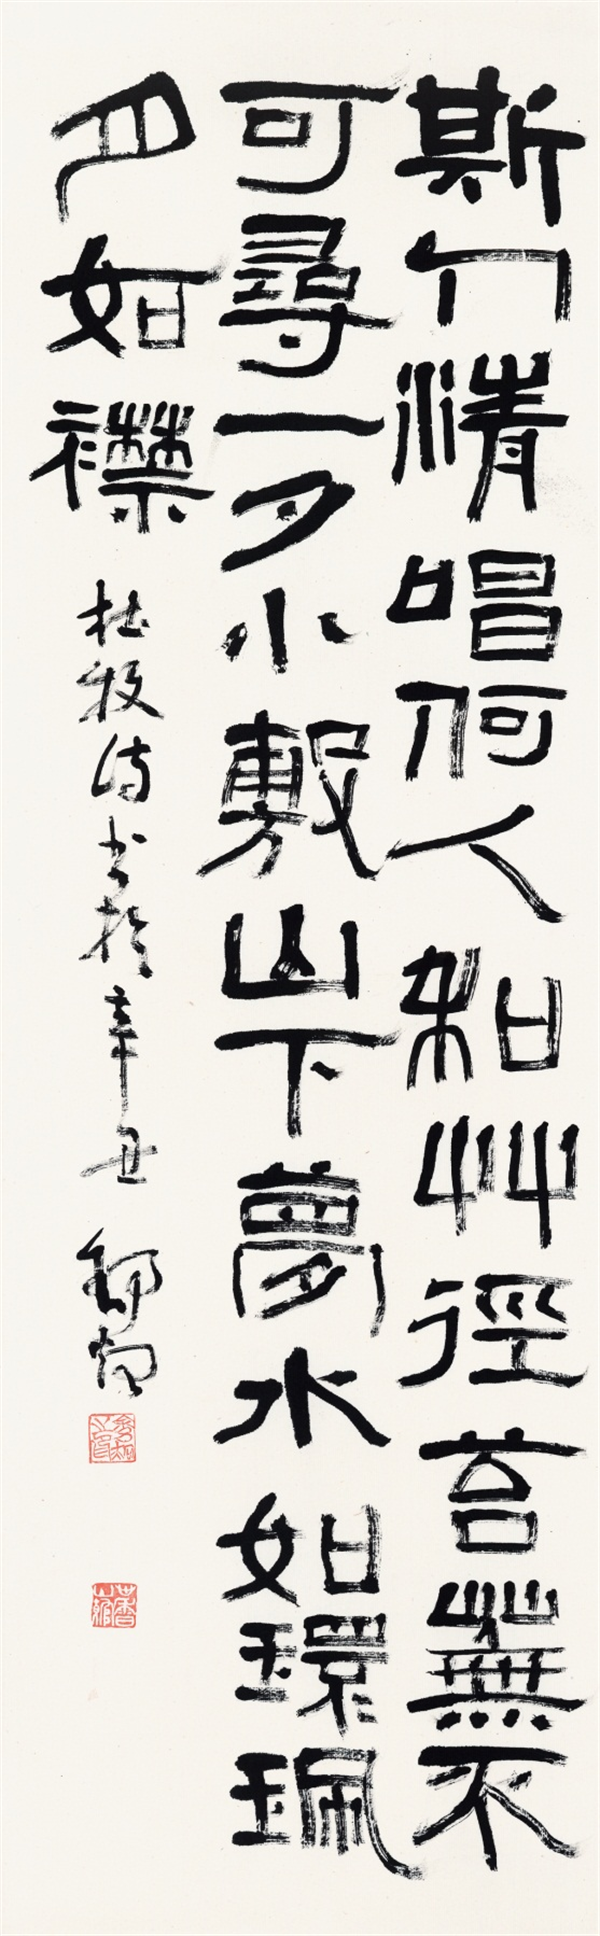 斯人清唱何人和艸徑苔蕪不
可尋一夕小敷山下夢水如環珮
月如襟
杜牧诗书於辛丑